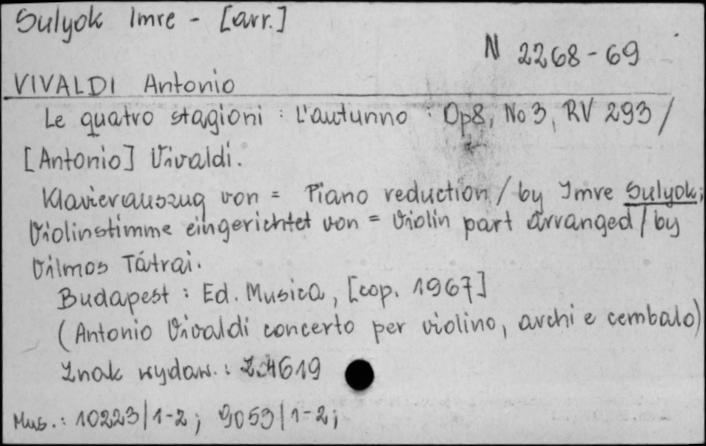 Sulyok Imre - [arr.]
N 2268-69
VIVALDI Antonio
Le quatro stagioni : L'autunno : Op8, No 3, RV 293 /
[Antonio] Vivaldi.
Klavierauszug von = Piano reduction / by Imre Sulyok;
Violinstimme eingerichtet von = Violin part arranged / by
Vilmos Tátrai.
Budapest : Ed. Musica, [cop. 1967]
(Antonio Vivaldi concerto per violino, archi e cembalo)
Znak wydaw. : Z.4619
Mus. : 10223/1-2 ; 9053/1-2 ;